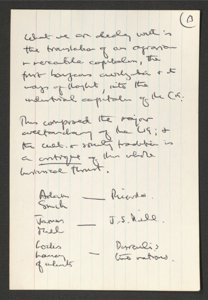 What we are dealing with is
the translation of an agrarian
& mercantile capitalism, the
first bourgeois civilization & its
ways of thought, into the
industrial capitalism of the C19.
This composed the major
of the C19; &
the cult. & society tradition is
a critique of this whole
historical thrust.
Adam Smith — Ricardo
James Mill — J.S. Mill
Locke — Disraeli's
two nations.